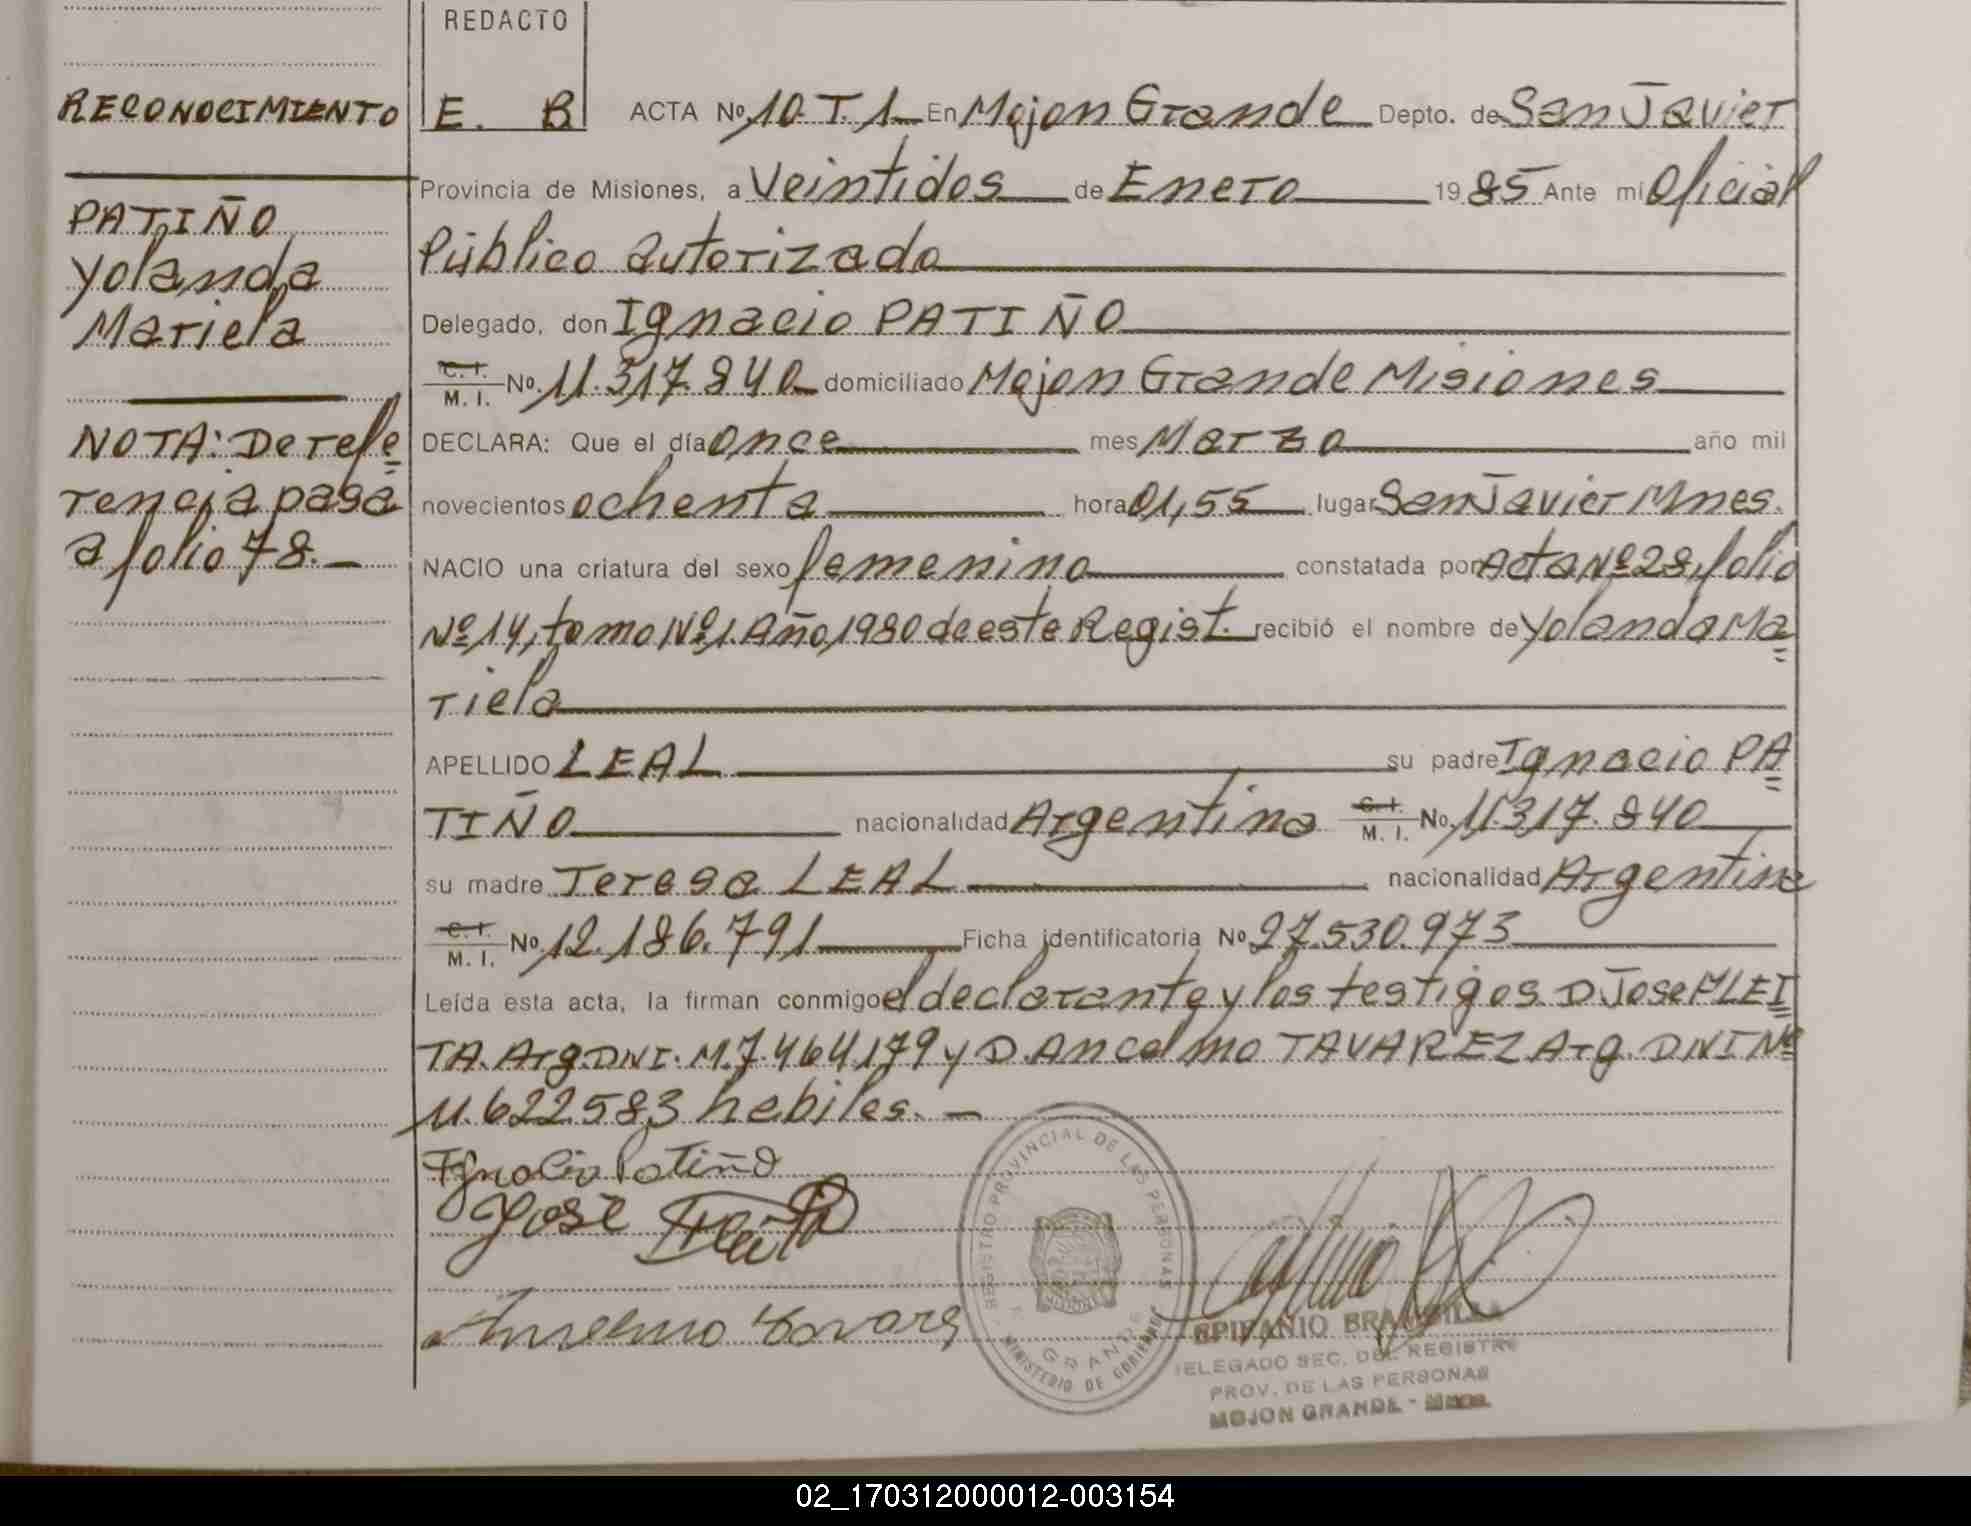 REDACTO
E. B
RECONOCIMIENTO
PATIÑO
Yolanda
Mariela
NOTA: De refe
rencia pasa
a folio 78.
ACTA No. 10. T. 1 En Mojon Grande Depto. de San Javier
Provincia de Misiones, a Veintidos de Enero 1985 Ante mi Oficial
Público autorizado
Delegado, don Ignacio PATIÑO
C. I. / M. I. No. 11.317.840 domiciliado Mojon Grande Misiones
DECLARA: Que el día once mes Marzo año mil
novecientos ochenta hora 01,55 lugar San Javier Mnes.
NACIO una criatura del sexo femenino constatada por Acta Nº 28, folio
Nº 14, tomo Nº 1. Año 1980 de este Regist. recibió el nombre de Yolanda Ma
riela
APELLIDO LEAL su padre Ignacio PA
TIÑO nacionalidad Argentina C. I. / M. I. No. 11317.840
su madre Teresa LEAL nacionalidad Argentina
C. I. / M. I. No. 12.186.791 Ficha identificatoria No. 27.530.973
Leída esta acta, la firman conmigo el declarante y los testigos D Jose FLEI
TA. Arg. DNI. M. 7.464.179 y D. Ancelmo TAVAREZ Arg. DNI Nº
11.622.583 hebiles.
Ignacio Patiño
Jose
Anselmo
REGISTRO PROVINCIAL DE LAS PERSONAS
MISIONES
GRANDE
MINISTERIO DE GOBIERNO
EPIFANIO
DELEGADO SEC. DEL REGISTRO
PROV. DE LAS PERSONAS
MOJON GRANDE - Mnes.
02_170312000012-003154